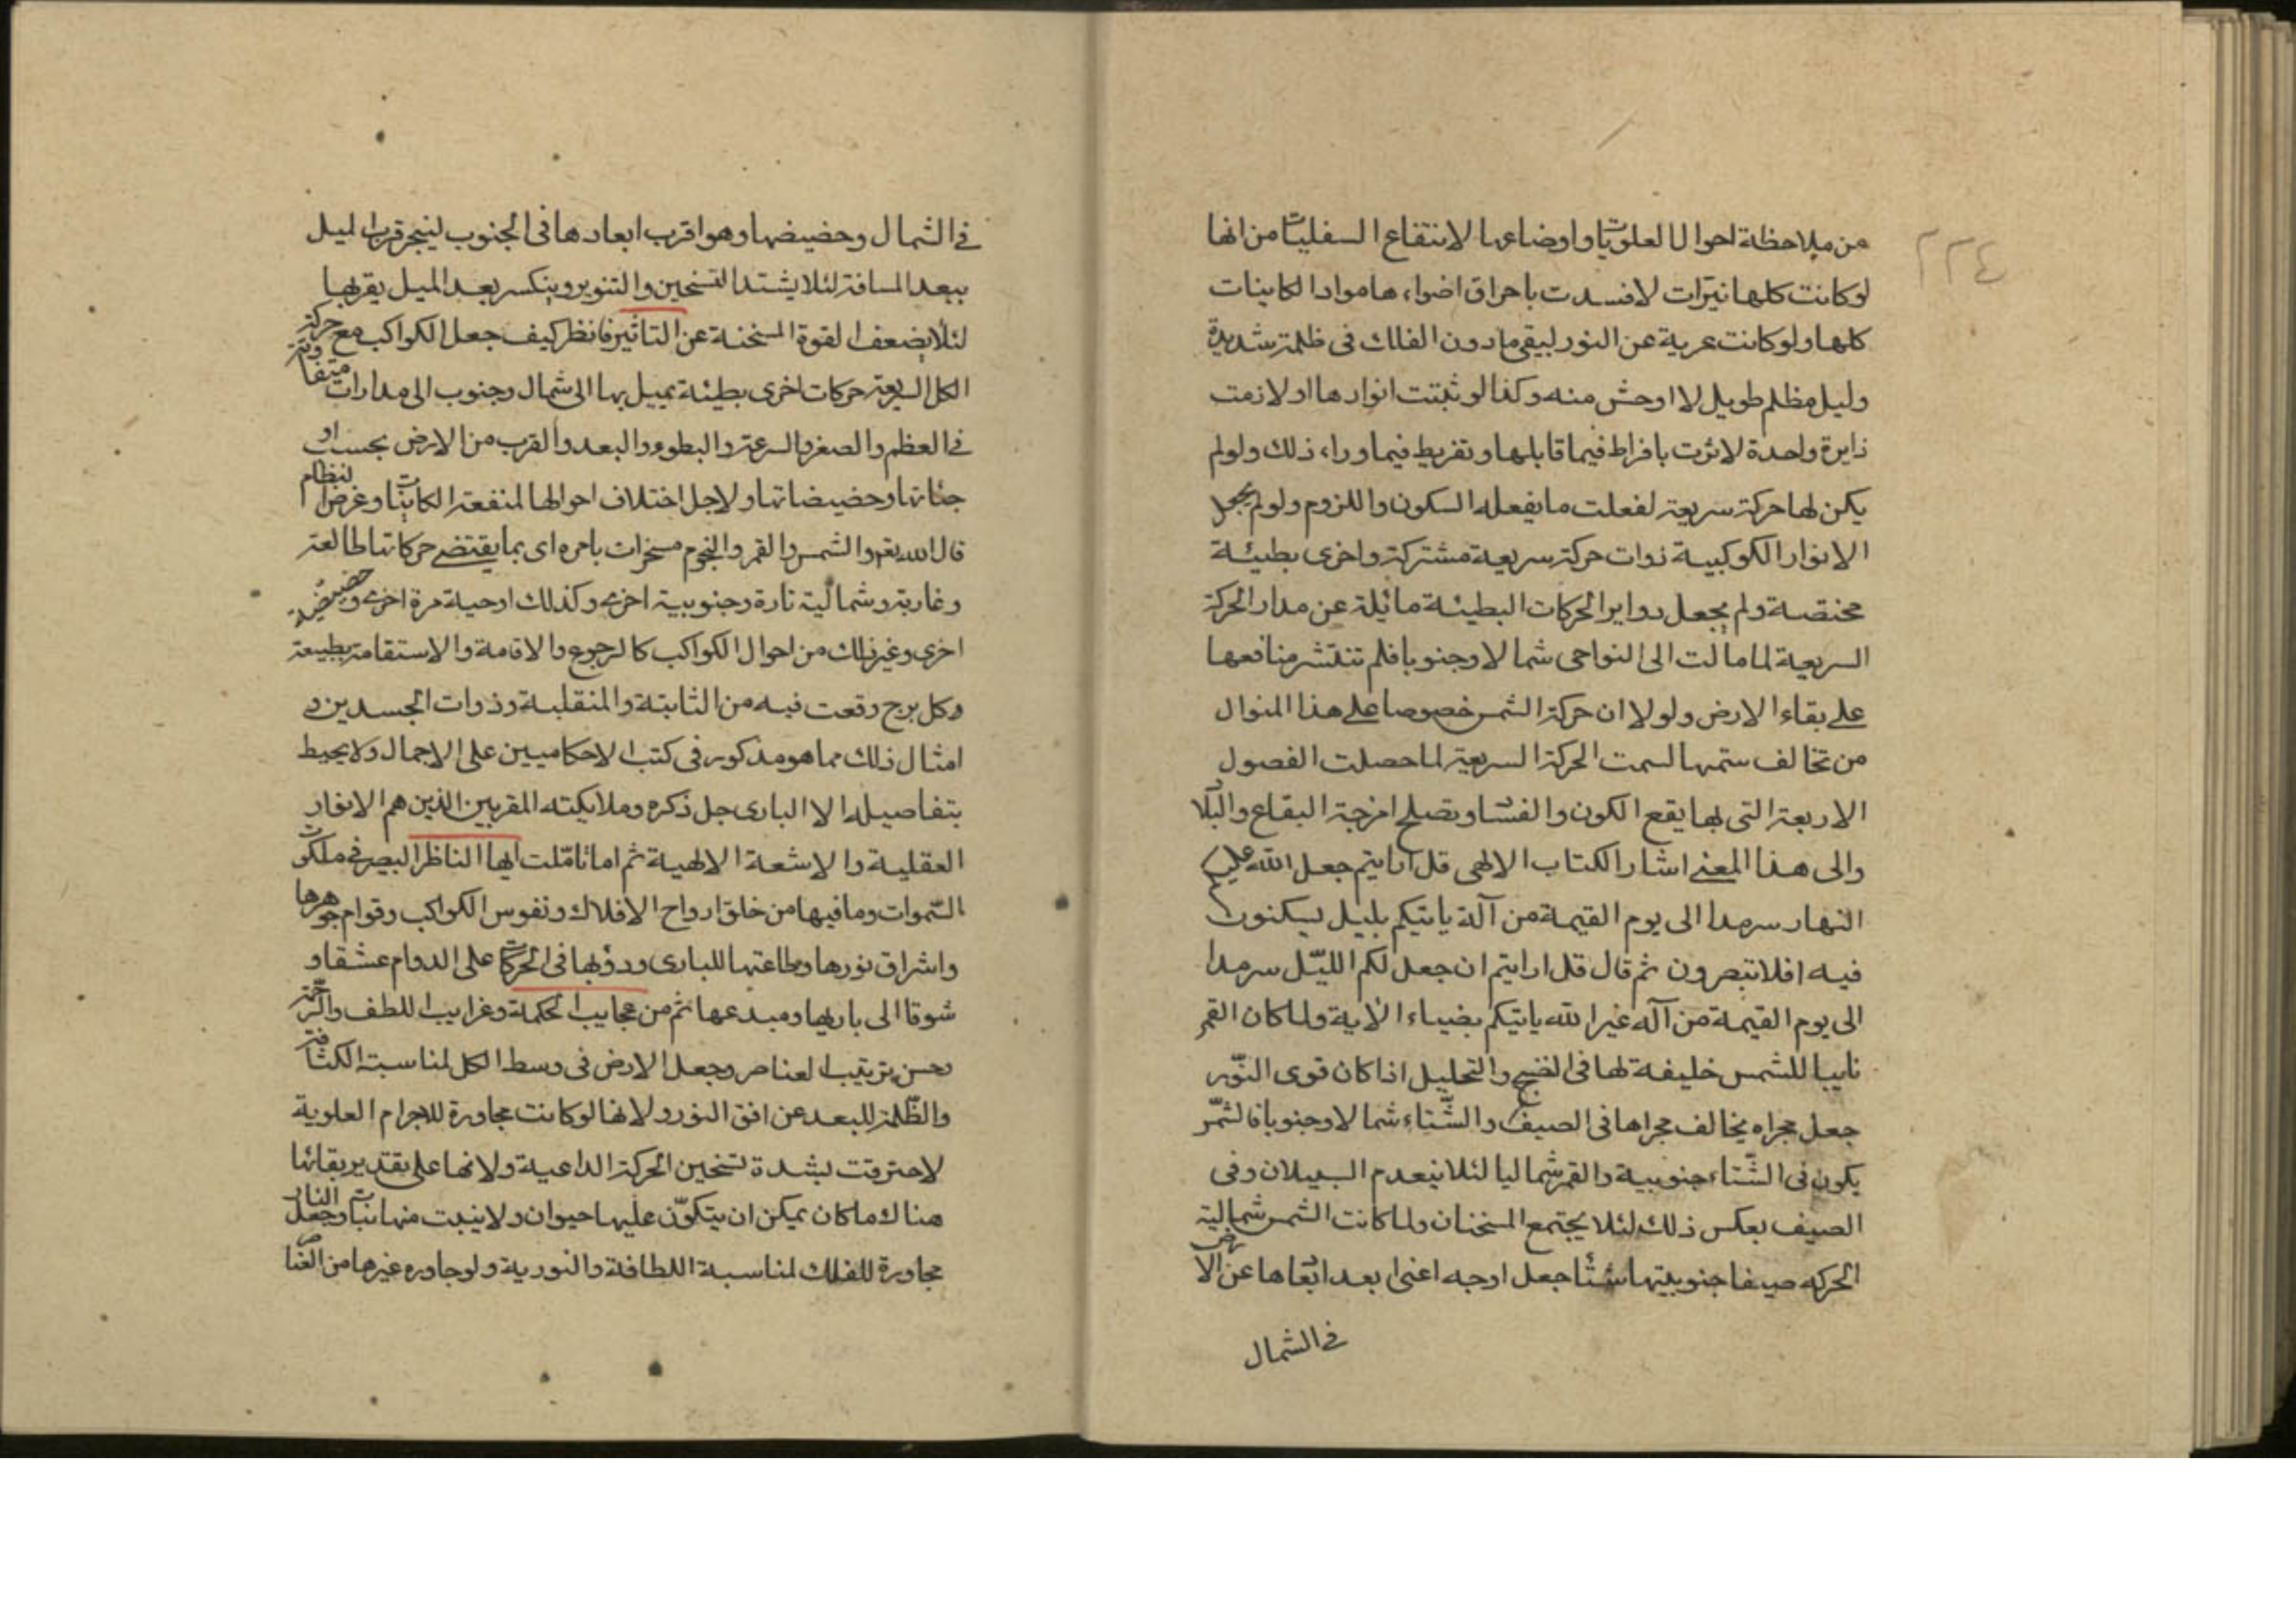 ٢٢٤
من ملاحظة احوال العلويات واوضاعها لانتفاع السفليات من انها
لوكانت كلها نيرات لافسدت باحراق اضواءها مواد الكاينات
كلها ولو كانت عرية عن النور لبقى ما دون الفلك فى ظلمة شديدة
وليل مظلم طويل لا اوحش منه وكذا لو ثبتت انوارها او لازمت
دايرة واحدة لاثرت بافراط فيما قابلها وتفريط فيما وراء ذلك ولولم
يكن لها حركة سريعة لفعلت ما يفعله السكون واللزوم ولولم يجعل
الانوار الكوكبية ذوات حركة سريعة مشتركة واخرى بطيئة
مختصة ولم يجعل دواير الحركات البطيئة مائلة عن مدار الحركة
السريعة لما مالت الى النواحى شمالا وجنوبا فلم تنتشر منافعها
على بقاء الارض ولولا ان حركة الشمس خصوصا على هذا المنوال
من تخالف سمتها لسمت الحركة السريعة لما حصلت الفصول
الاربعة التى بها يقع الكون والفساد وتصلح امزجة البقاع والبلاد
والى هذا المعنى اشار الكتاب الالهى قل ارايتم جعل الله عليكم
النهار سرمدا الى يوم القيمة من آله ياتيكم بليل يسكنون
فيه افلا تبصرون ثم قال قل ارايتم ان جعل لكم الليّل سرمدا
الى يوم القيمة من آله غير الله ياتيكم بضياء الاية ولما كان القمر
نايبا للشمس خليفة لها فى النضج والتحليل اذا كان قوى النوّر
جعل مجراه يخالف مجراها فى الصيف والشّتاء شمالا وجنوبا فالشمّس
يكون فى الشّتاء جنوبية والقمر شماليا لئلا ينعدم السببلان وفى
الصيف بعكس ذلك لئلا يجتمع المسخنان ولما كانت الشمس شمالية
الحركه صيفا جنوبيتها شتًا جعل اوجه اعنى ابعد ابعادها عن الارض
فى الشمال
فى الشمال وحضيضها وهو اقرب ابعادها فى الجنوب لينجر قرب الميل
ببعد المسافة لئلا يشتد التسخين والتنوير وينكسر بعد الميل بقربها
لئلا يضعف القوة المسخنة عن التاثير فانظر كيف جعل الكواكب مع حركة
الكل السريعة حركات اخرى بطيئة يميل بها الى شمال وجنوب الى مدارات متفاوتة
فى العظم والصغر والسرعة والبطوء والبعد والقرب من الارض بحسب او
جاتها وحضيضاتها ولاجل اختلاف احوالها لمنفعة الكاينات وغرض النظام
قال الله تعم والشمس والقمر والنجوم مسخرات بامره اى بما يقتضى حركاتها طالعة
وغاربة وشمالية تارة وجنوبية اخرى وكذلك اوجية مرة اخرى وحضيضية
اخرى وغير ذلك من احوال الكواكب كالرجوع والاقامة والاستقامة بطبيعة
وكل برج وقعت فيه من الثابتة والمنقلبة وذوات الجسدين و
امثال ذلك مما هو مذكور فى كتب الاحكاميين على الاجمال ولا يحيط
بتفاصيلها الا البارى جل ذكره وملايكته المقربين الذين هم الانوار
العقلية والاشعة الالهية ثم اما تامّلت ايها الناظر البصير فى ملكوت
السّموات وما فيها من خلق ارواح الافلاك ونفوس الكواكب وقوام جوهرها
واشراق نورها وطاعتها للبارى ودؤبها فى الحركات على الدوام عشقا و
شوقا الى باريها ومبدعها ثم من عجايب الحكمة وغرايب اللطف والرحمة
وحسن ترتيب العناصر وجعل الارض فى وسط الكل لمناسبة الكثافة
والظّلمة للبعد عن افق النور ولانها لو كانت مجاورة للاجرام العلوية
لاحترقت بشدة تسخين الحركة الداعية ولانها على تقدير بقائها
هناك ما كان يمكن ان يتكوّن عليها حيوان ولا ينبت منها نبات وجعل النار
مجاورة للفلك لمناسبة اللطافة والنورية ولو جاوره غيرها من العناصر